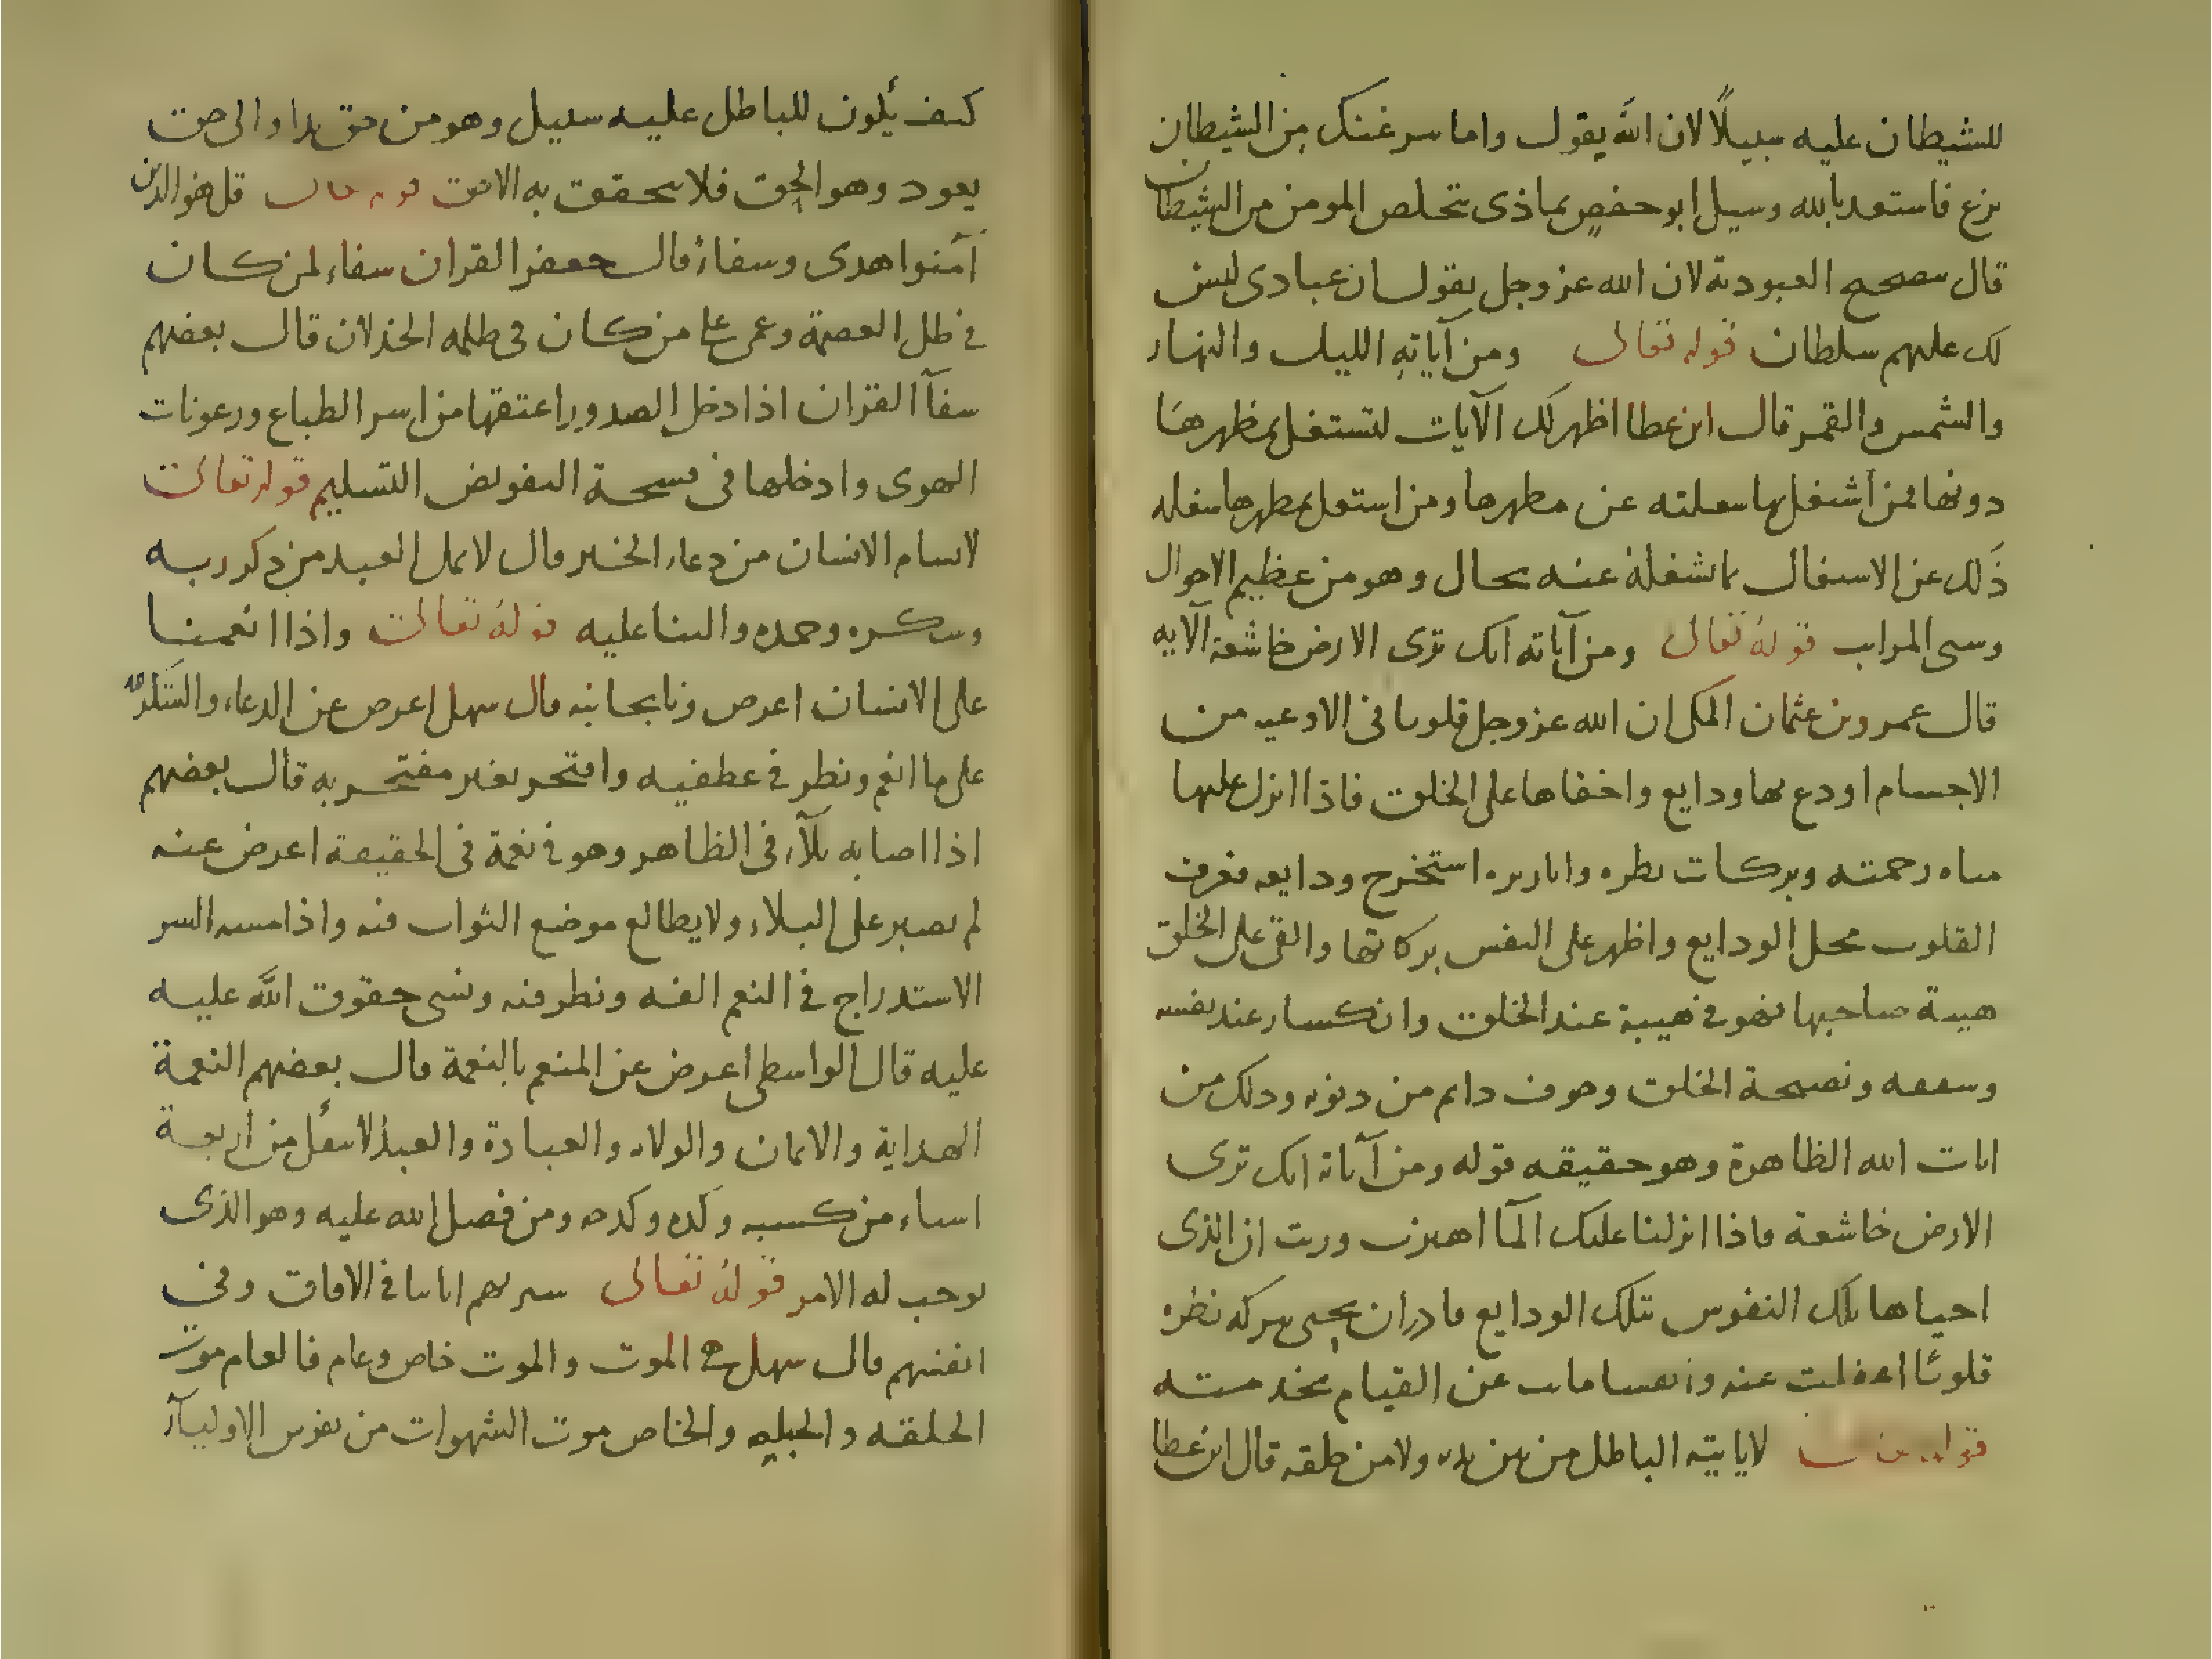 للشيطان عليه سبيلًا لان الله يقول واما سرغنك من الشيطان
نزغ فاستعد بالله وسيل ابو حفص بماذى يتخلص المومن من الشيطان
قال بصحح العبودية لان الله عز وجل يقول ان عبادى ليس
لك عليهم سلطان قوله تعالى ومن آياته الليل والنهار
والشمس والقمر قال ابن عطا اظهر لك الآيات لتستغل بمظهرها
دونها فمن اشتغل بها سعلته عن مطهرها ومن استعل بمطهرها سغله
ذلك عن الاستغال بما شغله عنه بحال وهو من عظيم الاحوال
وسى المراتب قوله تعالى ومن آياته انك ترى الارض خاشعة الآيه
قال عمرو بن عثمان المكى ان الله عز وجل قلوبا فى الاوعيه من
الاجسام اودع بها ودايع واخفاها على الخلق فاذا انزل عليها
مياه رحمته وبركات نطره وانار بره استخرج ودايعه فعرفت
القلوب محل الودايع واظهر على النفس بركاتها والقى على الخلق
هيبة صاحبها فهو فى هيبة عند الخلق وانكسار عند نفسه
وسفقه ونصيحة الخلق وخوف دايم من دنوبه ودلك من
ايات الله الظاهرة وهو حقيقه قوله ومن آياته انك ترى
الارض خاشعة فاذا انزلنا عليك المآ اهتزت وربت ان الذى
احياها بلك النفوس بتلك الودايع قادر ان يحيى ببركه نظره
قلوبًا اعفلت عنه وانفسا ماتت عن القيام بخدمته
قوله لا ياتيه الباطل من بين يديه ولا من خلفه قال ابن عطا
كيف يكون للباطل عليه سبيل وهو من حق بدا والى حق
يعود وهو الحق فلا يتحقق به الا حق قوله تعالى قل هو للذين
آمنوا هدى وسفاء قال جعفر القران سفاء لمن كان
فى ظل العصمة وعمى على من كان فى ظلمه الخذلان قال بعضهم
سفآ القران اذا دخل الصدور اعتقها من اسر الطباع ورعونات
الهوى وادخلها فى فسحة التفويض التسليم قوله تعالى
لا يسام الانسان من دعاء الخير قال لا يمل العبد من ذكر ربه
وسكره وحمده والثنا عليه قوله تعالى واذا انعمنا
على الانسان اعرض ونا بجانبه قال سهل اعرض عن الدعاء والشكر لله
على ما انعم ونظر فى عطفيه وافتخر بغير مفتخر به قال بعضهم
اذا اصابه بلآء فى الظاهر وهو فى نعمة فى الحقيقة اعرض عنه
لم يصبر على البلاء ولا يطالع موضع الثواب فيه واذا مسه السر
الاستدراج فى النعم الفه ونظر فيه ونسى حقوق الله عليه
عليه قال الواسطى اعرض عن المنعم بالنعمة قال بعضهم النعمة
الهداية والايمان والولاء والعبادة والعبد لا ينفك من اربعة
اسياء من كسبه وكده وكدحه ومن فضل الله عليه وهو الذى
يوجب له الامر قوله تعالى سنريهم اياتنا فى الافاق وفى
انفسهم قال سهل فى الموت والموت خاص وعام فالعام موت
الخلقه والجبله والخاص موت الشهوات من نفوس الاوليآء